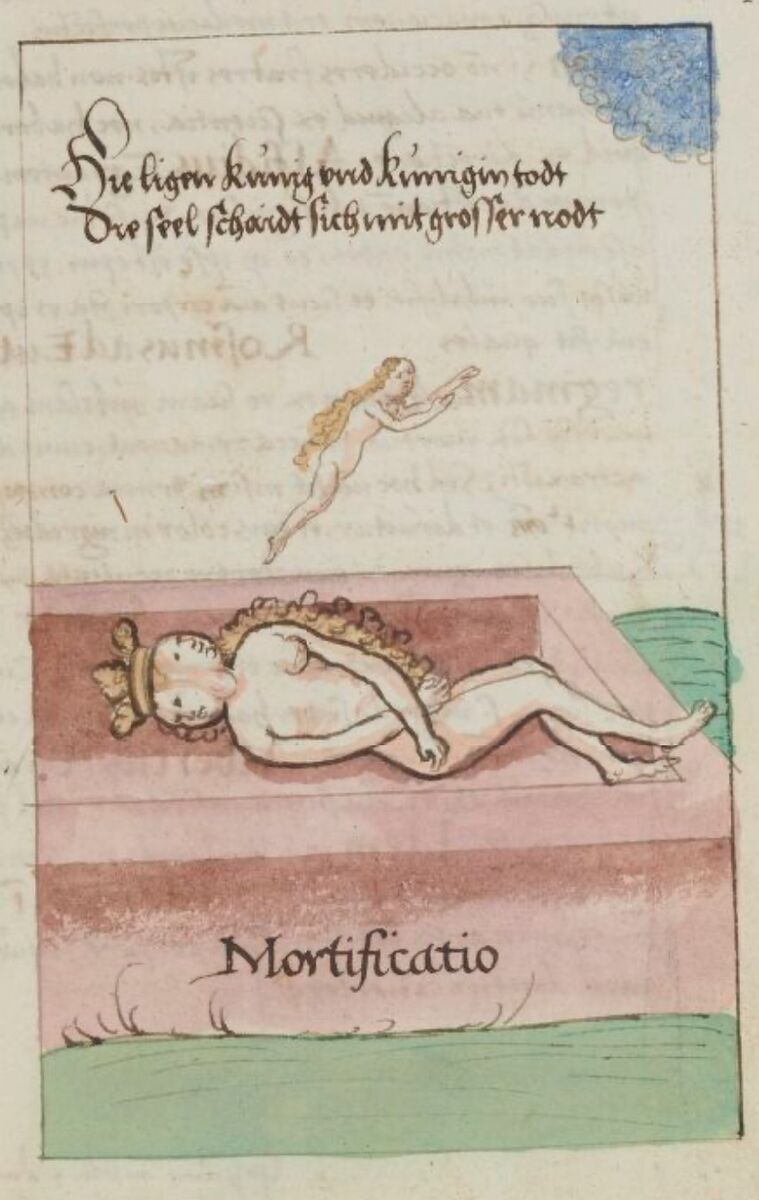 Hie ligen kunig vnd kunigin todt
Die seel schaidt sich mit grosser nodt
Mortificatio